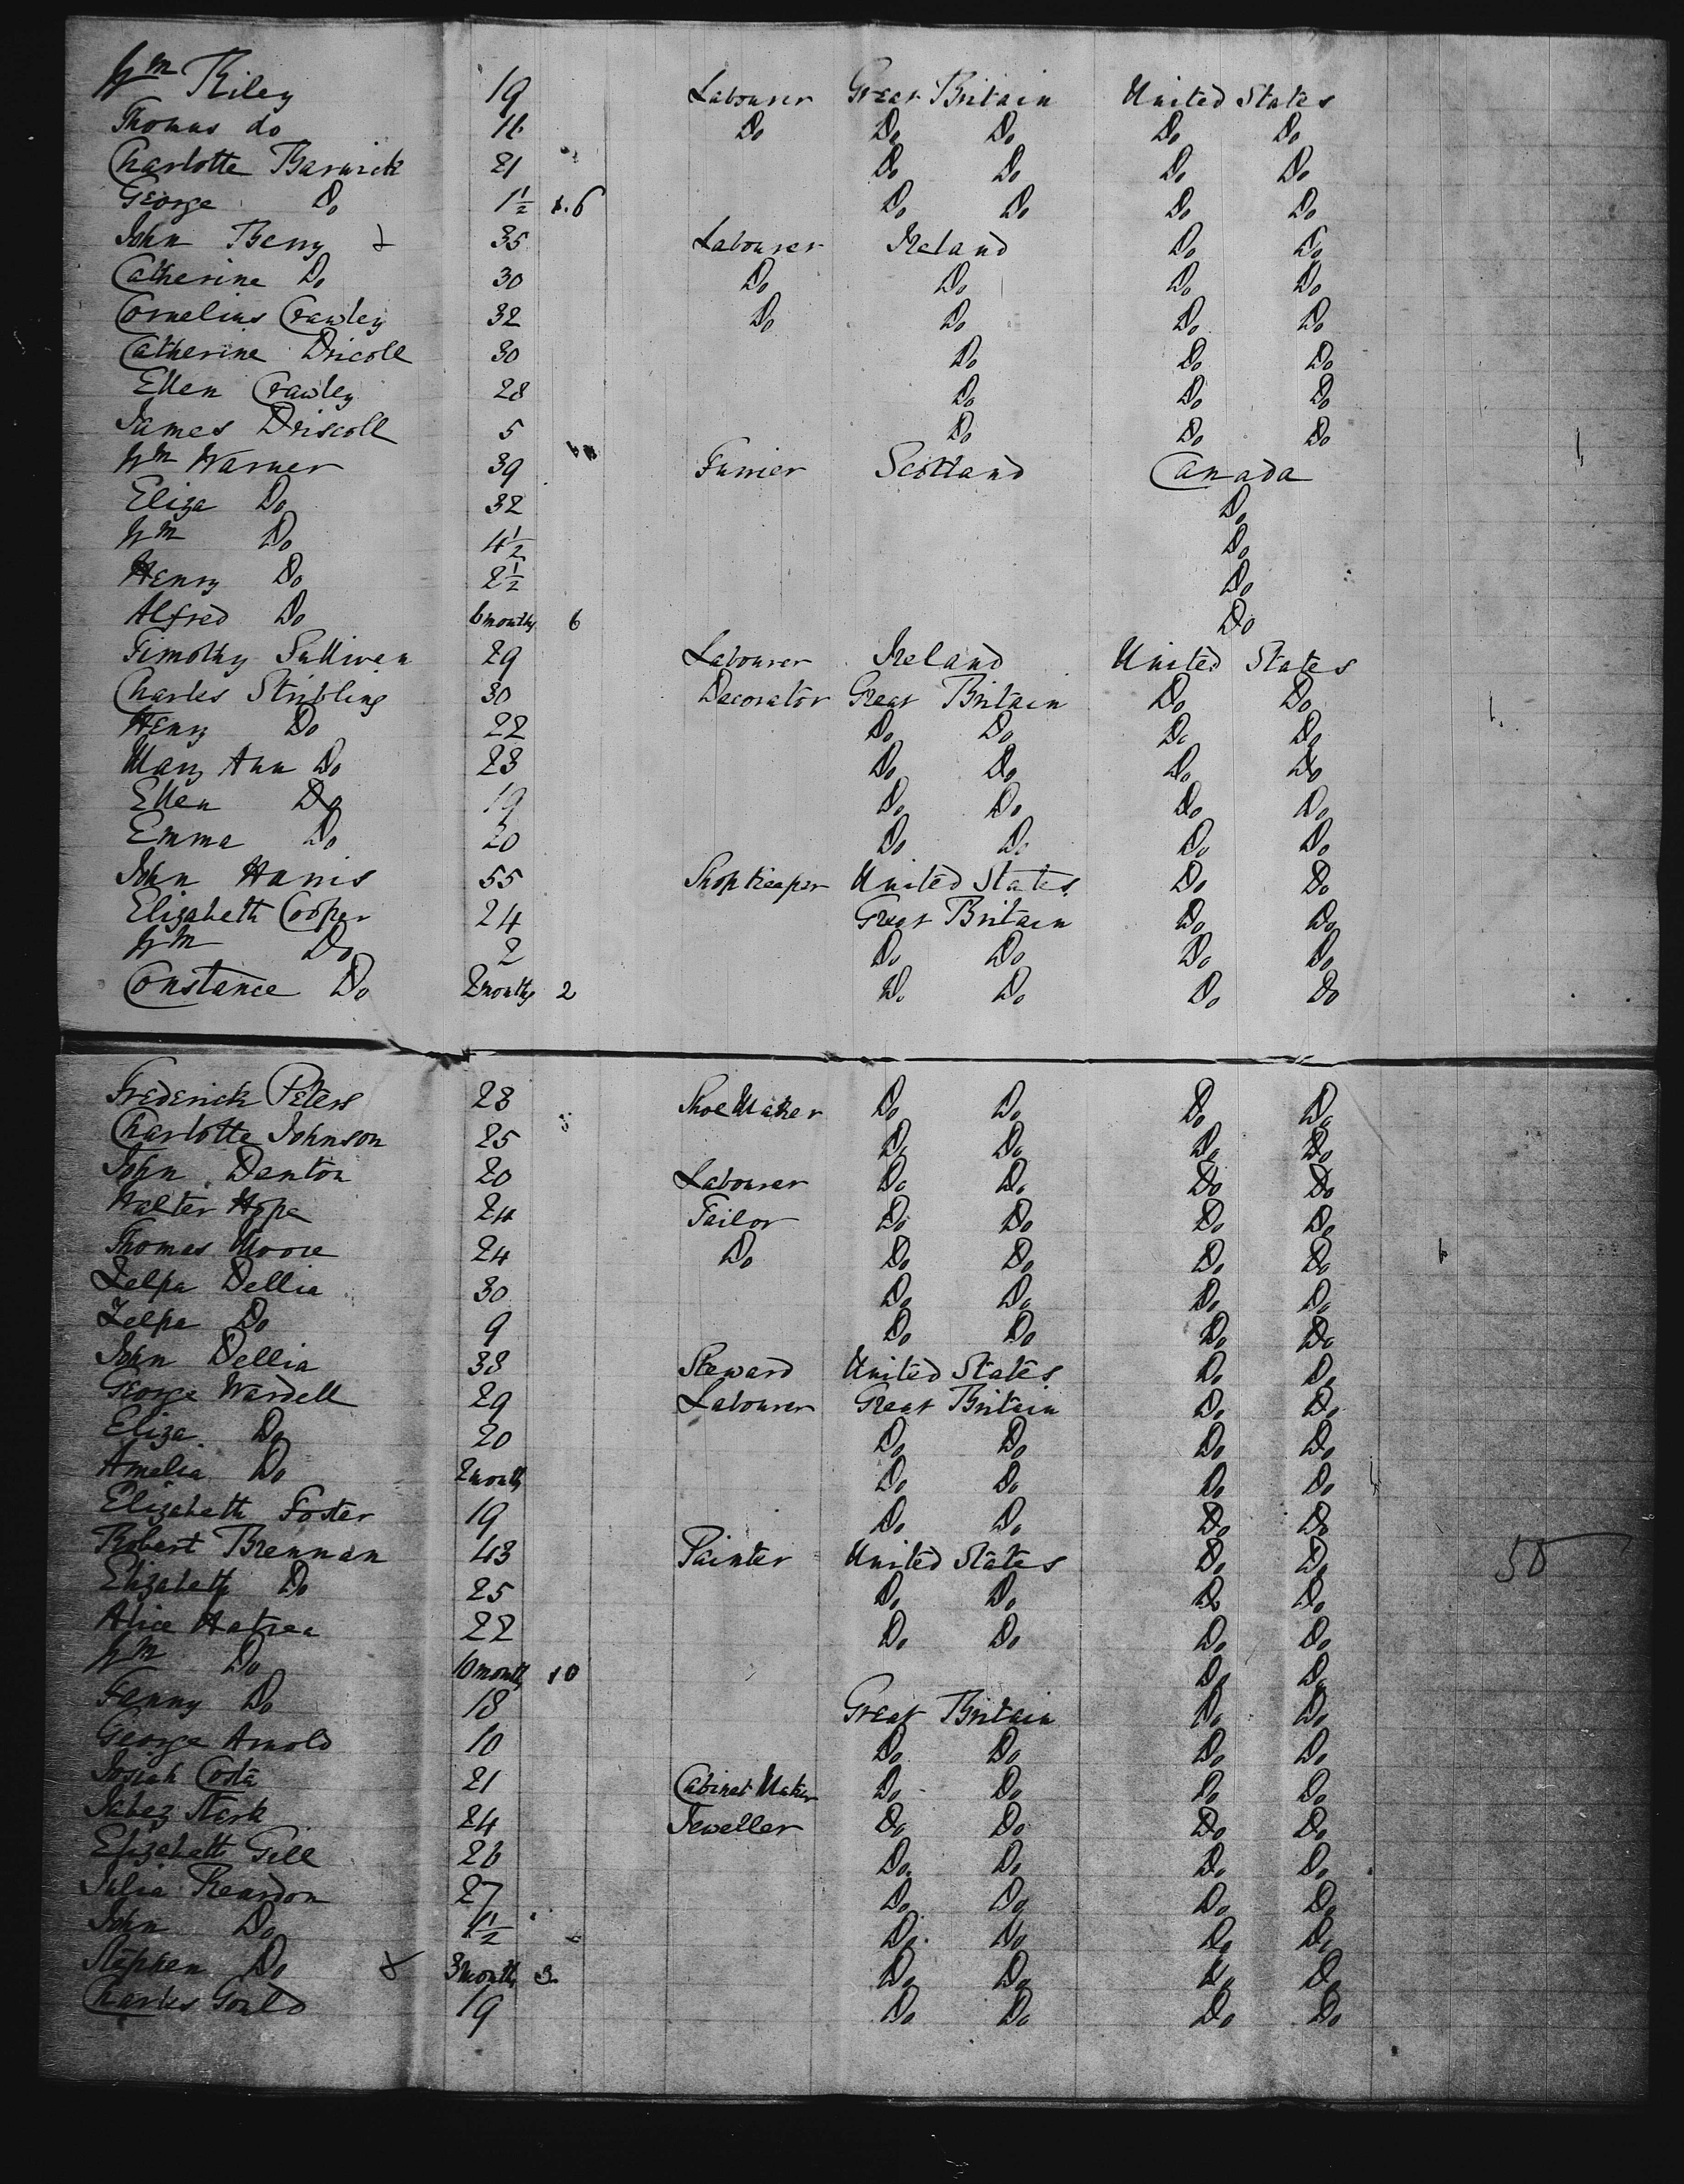 Wm Riley 19 Labourer Great Britain United States
Thomas do 16 Do Do Do Do Do
Charlotte Barwick 21 Do Do Do Do
George Do 1½ 1.6 Do Do Do Do
John Berry 35 Labourer Ireland Do Do
Catherine Do 30 Do Do Do Do
Cornelius Crawley 32 Do Do Do Do
Catherine Dricoll 30 Do Do Do
Ellen Crawley 28 Do Do Do
James Driscoll 5 Do Do Do
Wm Warner 39 Furrier Scotland Canada
Eliza Do 32 Do
Wm Do 4½ Do
Henry Do 2½ Do
Alfred Do 6 months 6 Do
Timothy Sullivan 29 Labourer Ireland United States
Charles Stribling 30 Decorator Great Britain Do Do
Henry Do 22 Do Do Do Do
Mary Ann Do 23 Do Do Do Do
Ellen Do 19 Do Do Do Do
Emma Do 20 Do Do Do Do
John Harris 55 Shop Keeper United States Do Do
Elizabeth Cooper 24 Great Britain Do Do
Wm Do 2 Do Do Do Do
Constance Do 2 months 2 Do Do Do Do
Frederick Peters 23 Shoe Maker Do Do Do Do
Charlotte Johnson 25 Do Do Do Do
John Denton 20 Labourer Do Do Do Do
Walter Hope 24 Tailor Do Do Do Do
Thomas Moore 24 Do Do Do Do Do
Zelpa Dellia 30 Do Do Do Do
Zelpa Do 9 Do Do Do Do
John Dellia 38 Steward United States Do Do
George Wardell 29 Labourer Great Britain Do Do
Eliza Do 20 Do Do Do Do
Amelia Do 2 month Do Do Do Do
Elizabeth Foster 19 Do Do Do Do
Robert Brennan 43 Painter United States Do Do 50
Elizabeth Do 25 Do Do Do Do
Alice 22 Do Do Do Do
Wm Do 10 month 10 Do Do
Fanny Do 18 Great Britain Do Do
George Arnold 10 Do Do Do Do
Josiah Costa 21 Cabinet Maker Do Do Do Do
Jabez 24 Jeweller Do Do Do Do
Elizabeth Gill 26 Do Do Do Do
Julia Reardon 27 Do Do Do Do
John Do 1½ Do Do Do Do
Stephen Do 3 month 3 Do Do Do Do
Charles Gould 19 Do Do Do Do